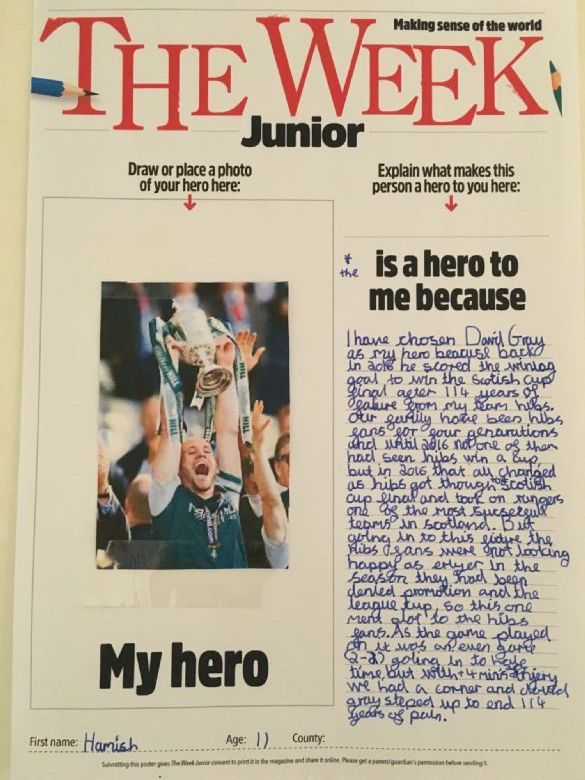 Making sense of the world
THE WEEK
Junior
Draw or place a photo
of your hero here:
Explain what makes this
person a hero to you here:
* the
is a hero to
me because
I have chosen David Gray
as my hero because back
in 2016 he scored the wining
goal to win the Scotish cup
final after 114 years of
failure from my team hibs.
Our family have been hibs
fans for four genarations
and until 2016 not one of them
had seen hibs win a cup
but in 2016 that all changed
as hibs got though to scotish
cup final and took on rangers
one of the most sucseful
teams in scotland. But
going in to this fixture the
hibs fans were not looking
happy as erlyer in the
season they had been
denied promotion and the
league cup, so this one
ment alot to the hibs
fans. As the game played
on it was an even game
(2-2) going in to
time but with +4 mins injery
we had a corner and David
gray steped up to end 114
years of pain.
My hero
First name: Hamish
Age: 11
County:
Submitting this poster gives The Week Junior consent to print it in the magazine and share it online. Please get a parent/guardian's permission before sending it.